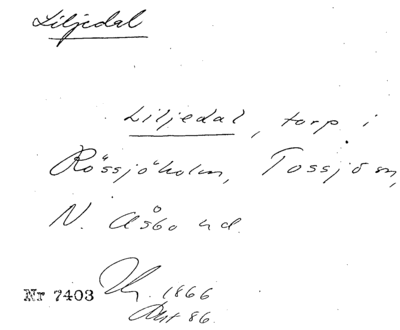 Liljedal
Liljedal, torp i
Rössjöholm, Tossjö sn,
N. Åsbo hd.
Nr 7403
1866
86.